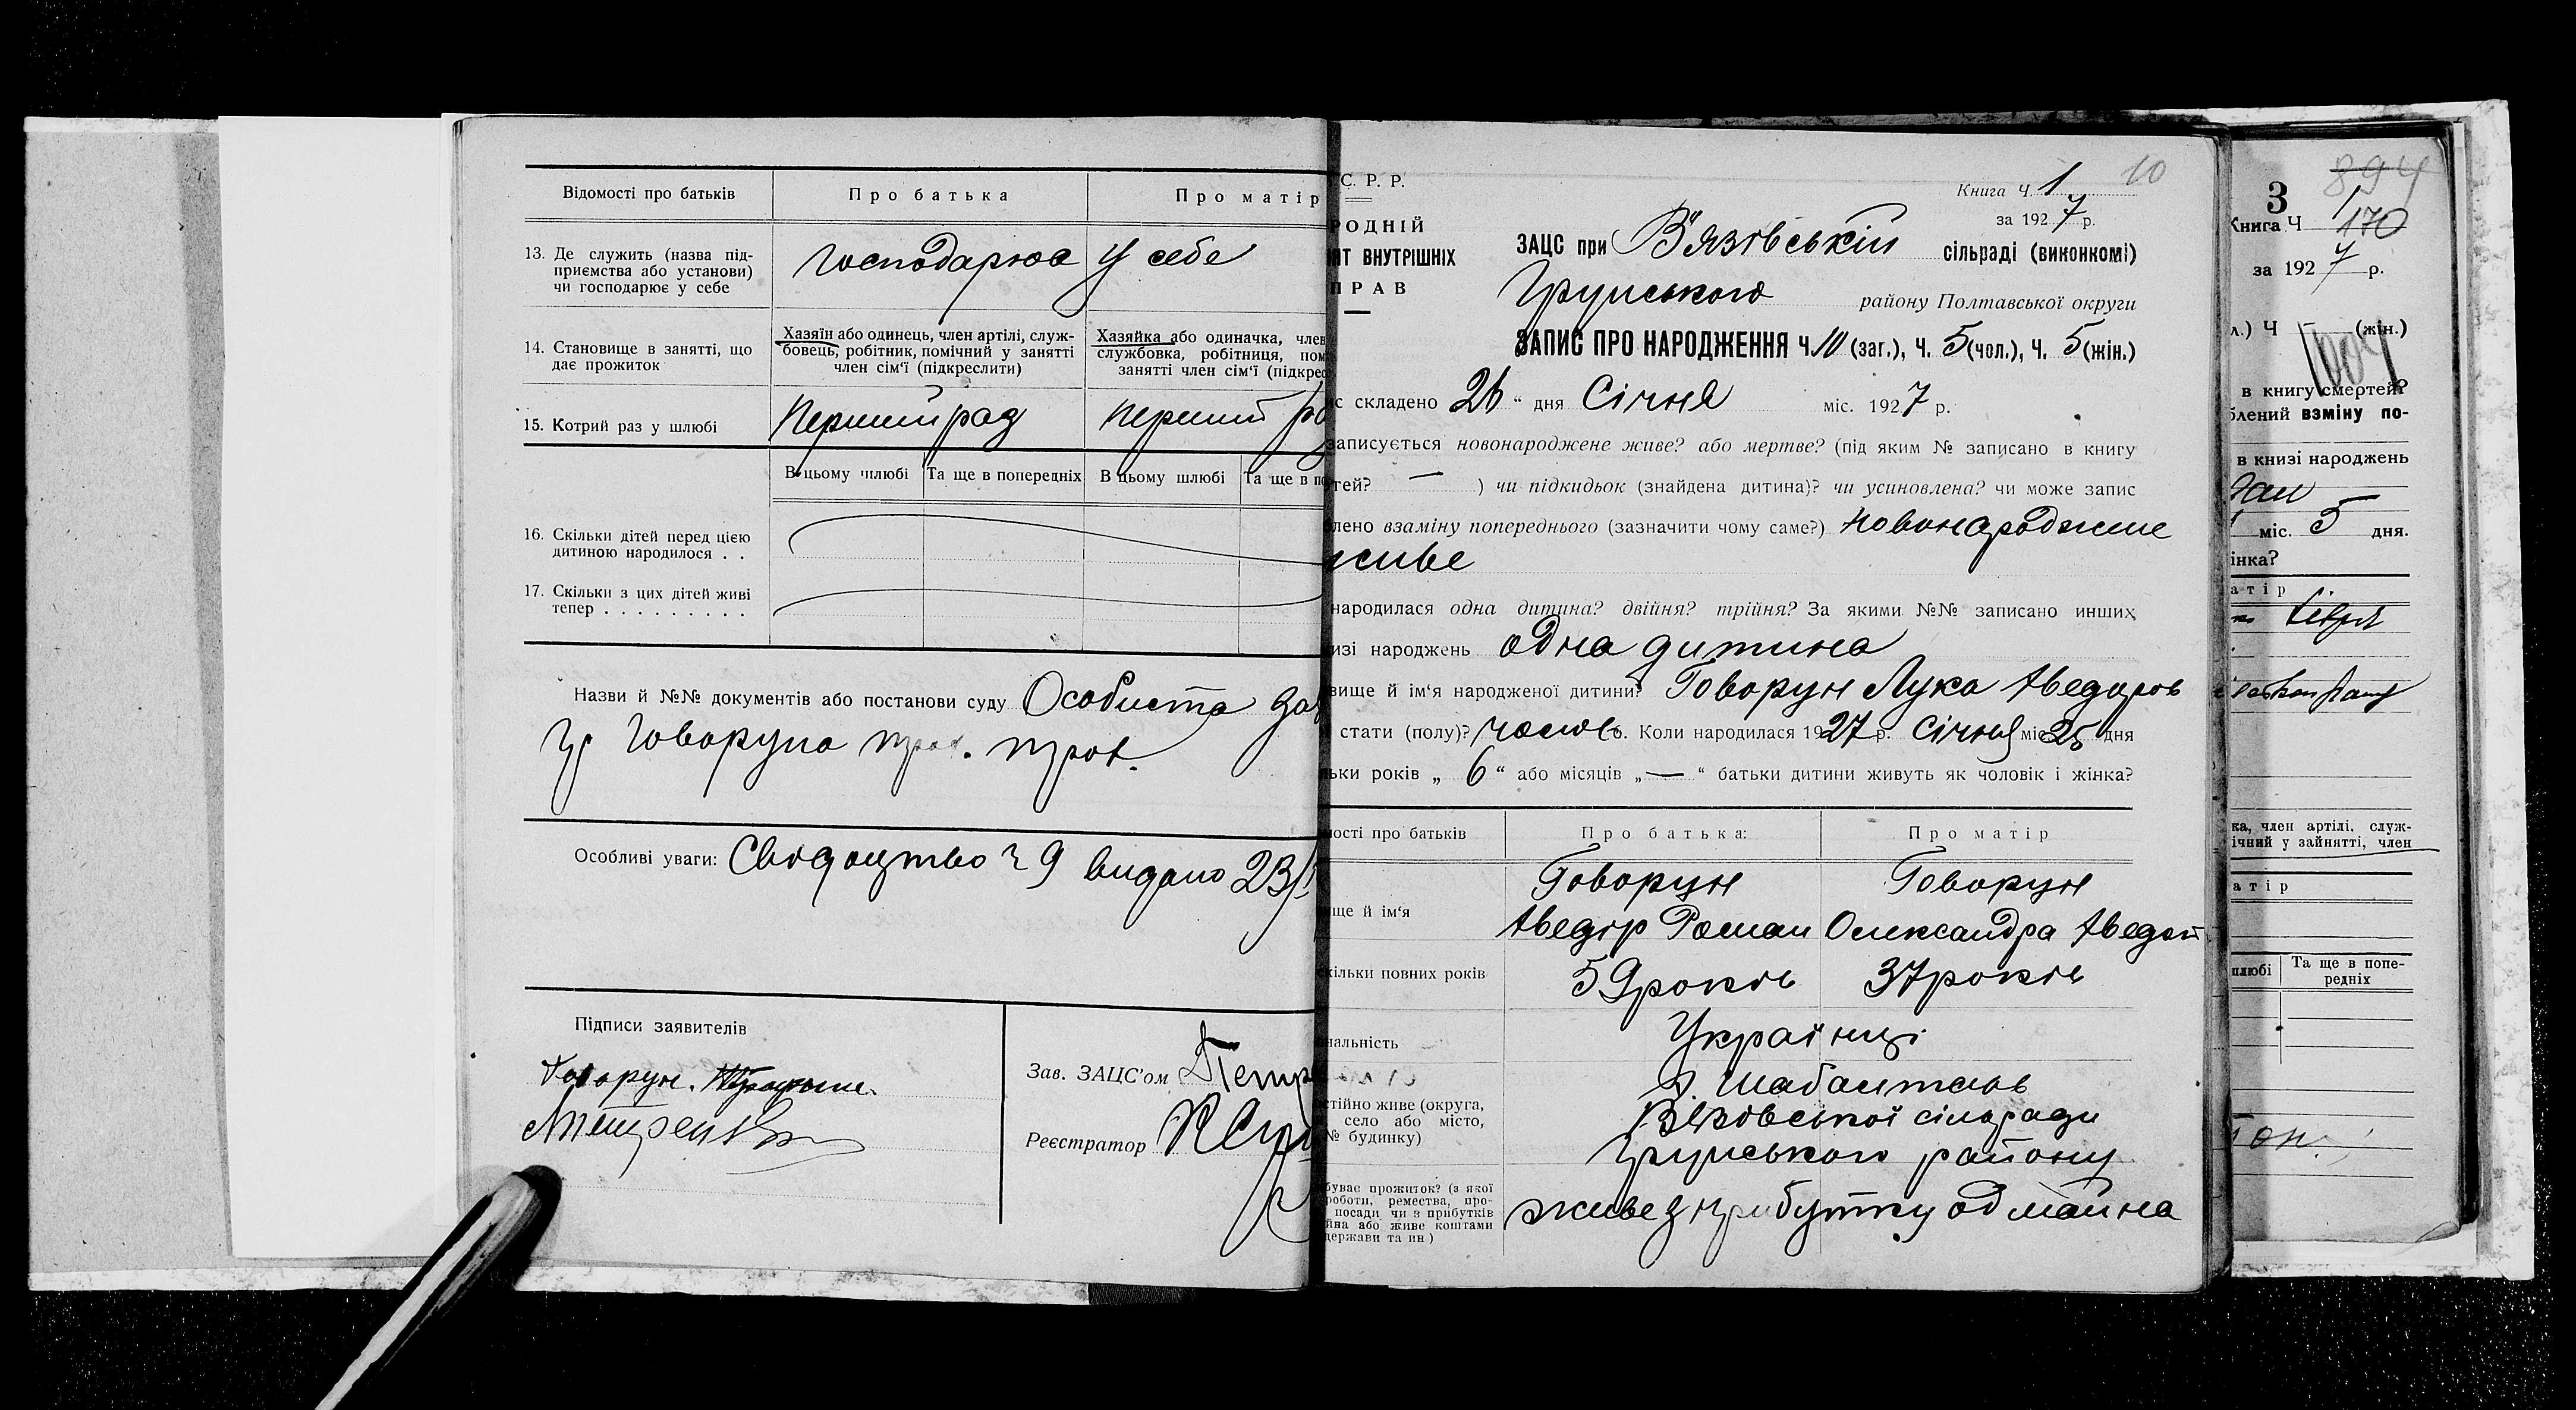 Відомості про батьків
Про батька
Про матір
13. Де служить (назва під-
приємства або установи)
чи господарює у себе
господарює у себе
14. Становище в занятті, що
дає прожиток
Хазяїн або одинець, член артілі, служ-
бовець, робітник, помічний у занятті
член сім‘ї (підкреслити)
Хазяйка або одиначка, член
службовка, робітниця, пом
занятті член сім‘ї (підкрес
15. Котрий раз у шлюбі
Перший раз
перший ра
В цьому шлюбі
Та ще в попередніх
В цьому шлюбі
Та ще в по
16. Скільки дітей перед цією
дитиною народилося . .
17. Скільки з цих дітей живі
тепер . . . . . . . . .
Назви й №№ документів або постанови суду Особиста зая
гр Говоруна
Особливі уваги: Свідоцтво ч 9 видано 23/1
Підписи заявителів
Говорун.
Зав. ЗАЦС’ом Петр
Реєстратор
С. Р. Р.
РОДНІЙ
ЯТ ВНУТРІШНІХ
ПРАВ
Книга Ч. 1
10
за 1927 р.
ЗАЦС при В'язівській сільраді (виконкомі)
Грунського району Полтавської округи
ЗАПИС ПРО НАРОДЖЕННЯ Ч. 10 (заг.), Ч. 5 (чол.), Ч. 5 (жін.)
ис складено 26 “ дня Січня міс. 1927 р.
записується новонароджене живе? або мертве? (під яким № записано в книгу
тей? — ) чи підкидьок (знайдена дитина)? чи усиновлена? чи може запис
лено взаміну попереднього (зазначити чому саме?) новонароджене
живе
народилася одна дитина? двійня? трійня? За якими №№ записано инших
изі народжень одна дитина
вище й ім‘я народженої дитини? Говорун Лука Аведоров
стати (полу)? чолов. Коли народилася 1927 р. Січня міс 25 дня
льки років „ 6 “ або місяців „ — “ батьки дитини живуть як чоловік і жінка?
мості про батьків
Про батька:
Про матір
ище й ім‘я
Говорун
Аведір Роман
Говорун
Олександра Аведот
кільки повних років
59 років
37 років
нальність
Українці
стійно живе (округа,
село або місто,
№ будинку)
х. Шабалтаїв
Вязовської сільради
Грунського району
буває прожиток? (з якої
роботи, ремества, про-
посади чи з прибутків
йна або живе коштами
держави та ин)
живе з прибутку од майна
894
3
Книга Ч 1
170
за 1927 р.
л.) Ч — (жін.)
в книгу смертей?
блений взміну по-
в книзі народжень
міс. 5 дня.
інка?
атір
ка, член артілі, служ-
ічний у зайнятті, член
атір
шлюбі
Та ще в попе-
редніх